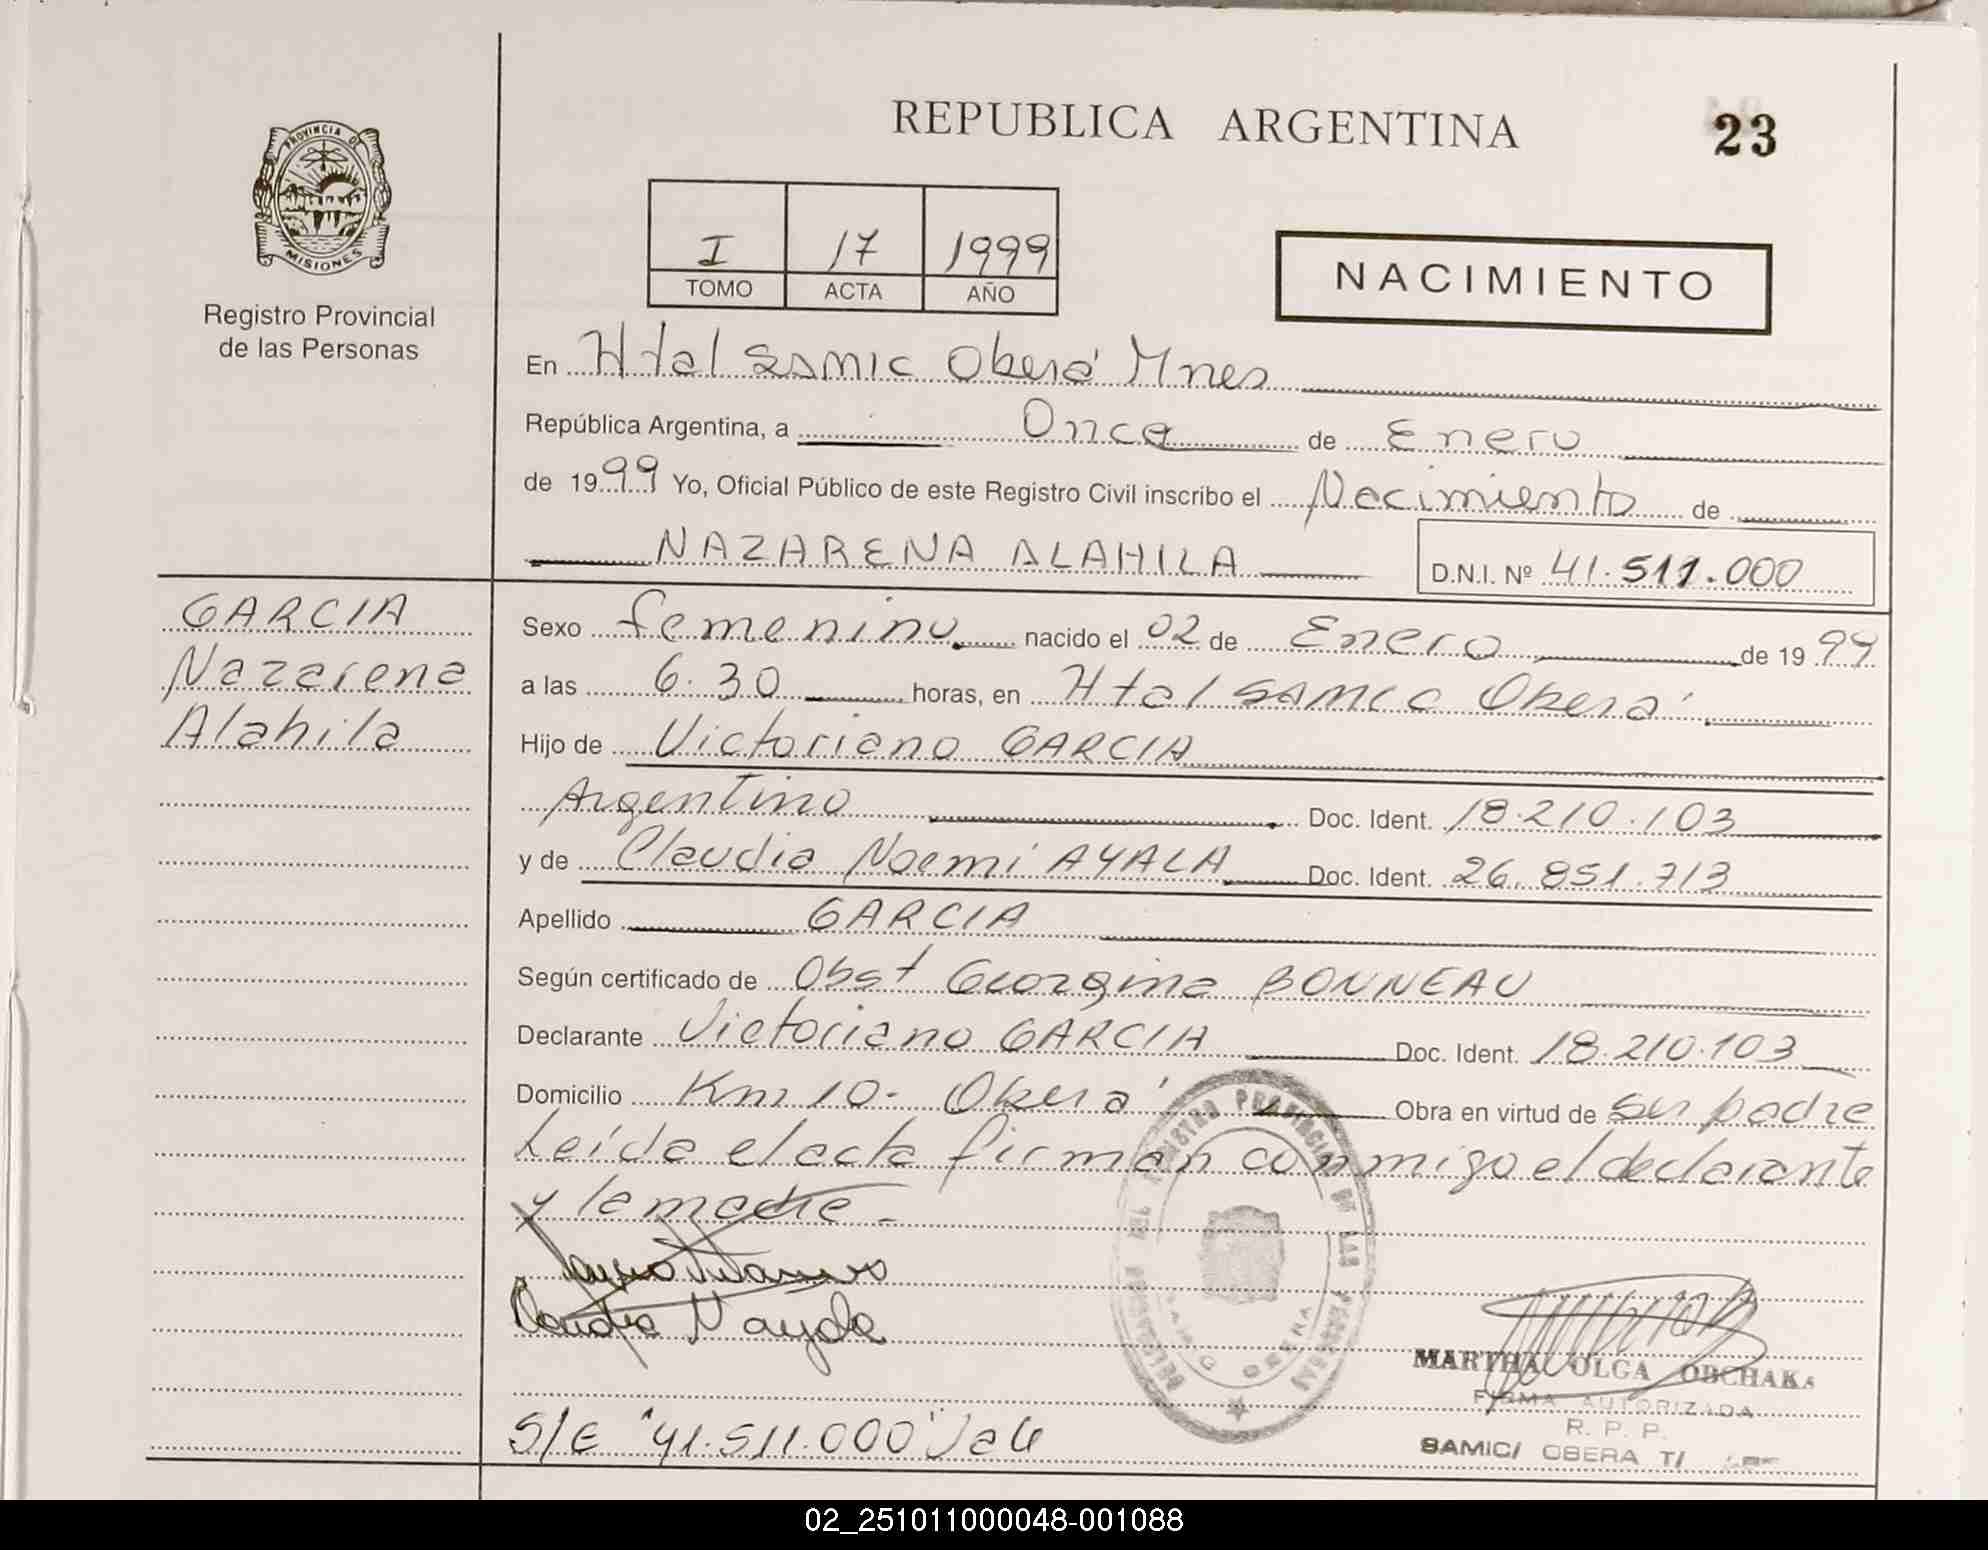 REPUBLICA ARGENTINA
23
PROVINCIA DE
MISIONES
Registro Provincial
de las Personas
I 17 1999
TOMO ACTA AÑO
NACIMIENTO
En Htal SAMIC Oberá Mnes
República Argentina, a Once de Enero
de 1999 Yo, Oficial Público de este Registro Civil inscribo el Nacimiento de
NAZARENA ALAHILA D.N.I. Nº 41.511.000
GARCIA
Nazarena
Alahila
Sexo femenino nacido el 02 de Enero de 1999
a las 6.30 horas, en Htal SAMIC Oberá
Hijo de Victoriano GARCIA
Argentino Doc. Ident. 18.210.103
y de Claudia Noemí AYALA Doc. Ident. 26.851.713
Apellido GARCIA
Según certificado de Obst Georgina BONNEAU
Declarante Victoriano GARCIA Doc. Ident. 18.210.103
Domicilio Km 10- Oberá Obra en virtud de ser padre
Leída el acta firman conmigo el declarante
y la madre-
REGISTRO PROVINCIAL DE LAS PERSONAS
OBERA
MARTHA OLGA OBCHAKA
FIRMA AUTORIZADA
R. P. P.
SAMIC/ OBERA
S/E "41.511.000" Vale
02_251011000048-001088